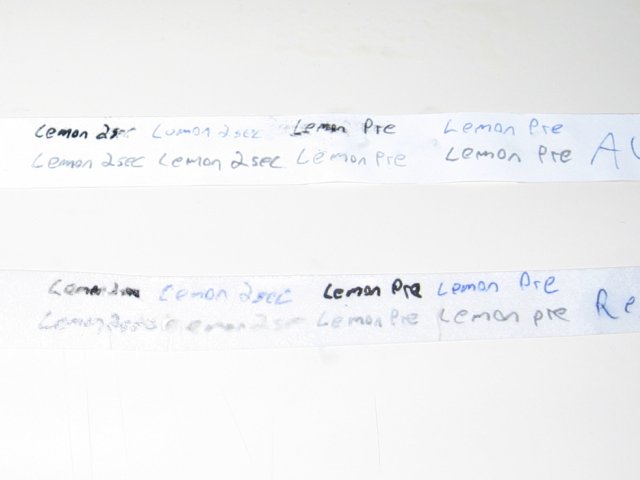 Lemon 2sec Lemon 2sec Lemon Pre Lemon Pre
Lemon 2sec Lemon 2sec Lemon Pre Lemon Pre
Lemon 2sec Lemon Pre Lemon Pre
Lemon 2sec Lemon 2sec Lemon Pre Lemon pre